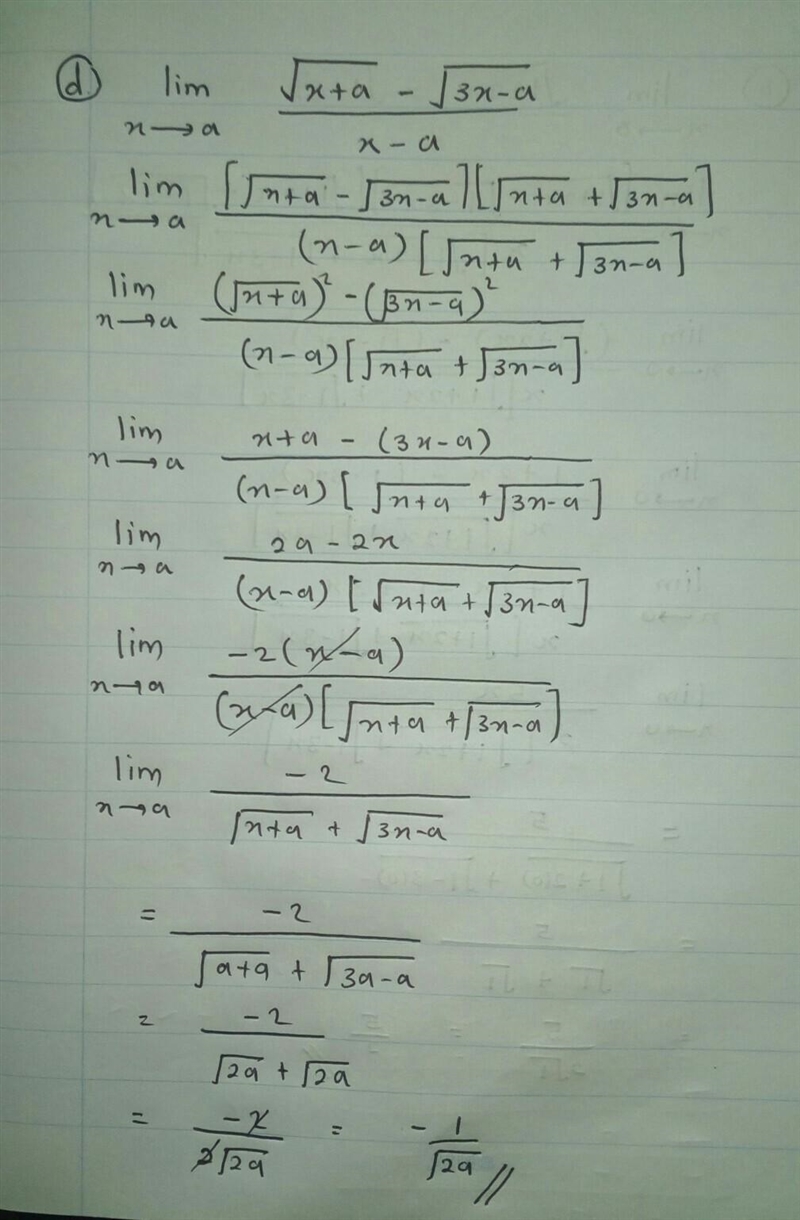 (d) lim x→a (√(x+a) - √(3x-a)) / (x-a)
lim x→a ([√(x+a) - √(3x-a)][√(x+a) + √(3x-a)]) / ((x-a)[√(x+a) + √(3x-a)])
lim x→a ((√(x+a))² - (√(3x-a))²) / ((x-a)[√(x+a) + √(3x-a)])
lim x→a (x+a - (3x-a)) / ((x-a)[√(x+a) + √(3x-a)])
lim x→a (2a - 2x) / ((x-a)[√(x+a) + √(3x-a)])
lim x→a (-2(x-a)) / ((x-a)[√(x+a) + √(3x-a)])
lim x→a (-2) / (√(x+a) + √(3x-a))
= (-2) / (√(a+a) + √(3a-a))
= (-2) / (√(2a) + √(2a))
= (-2) / (2√(2a)) = - 1/√(2a) //